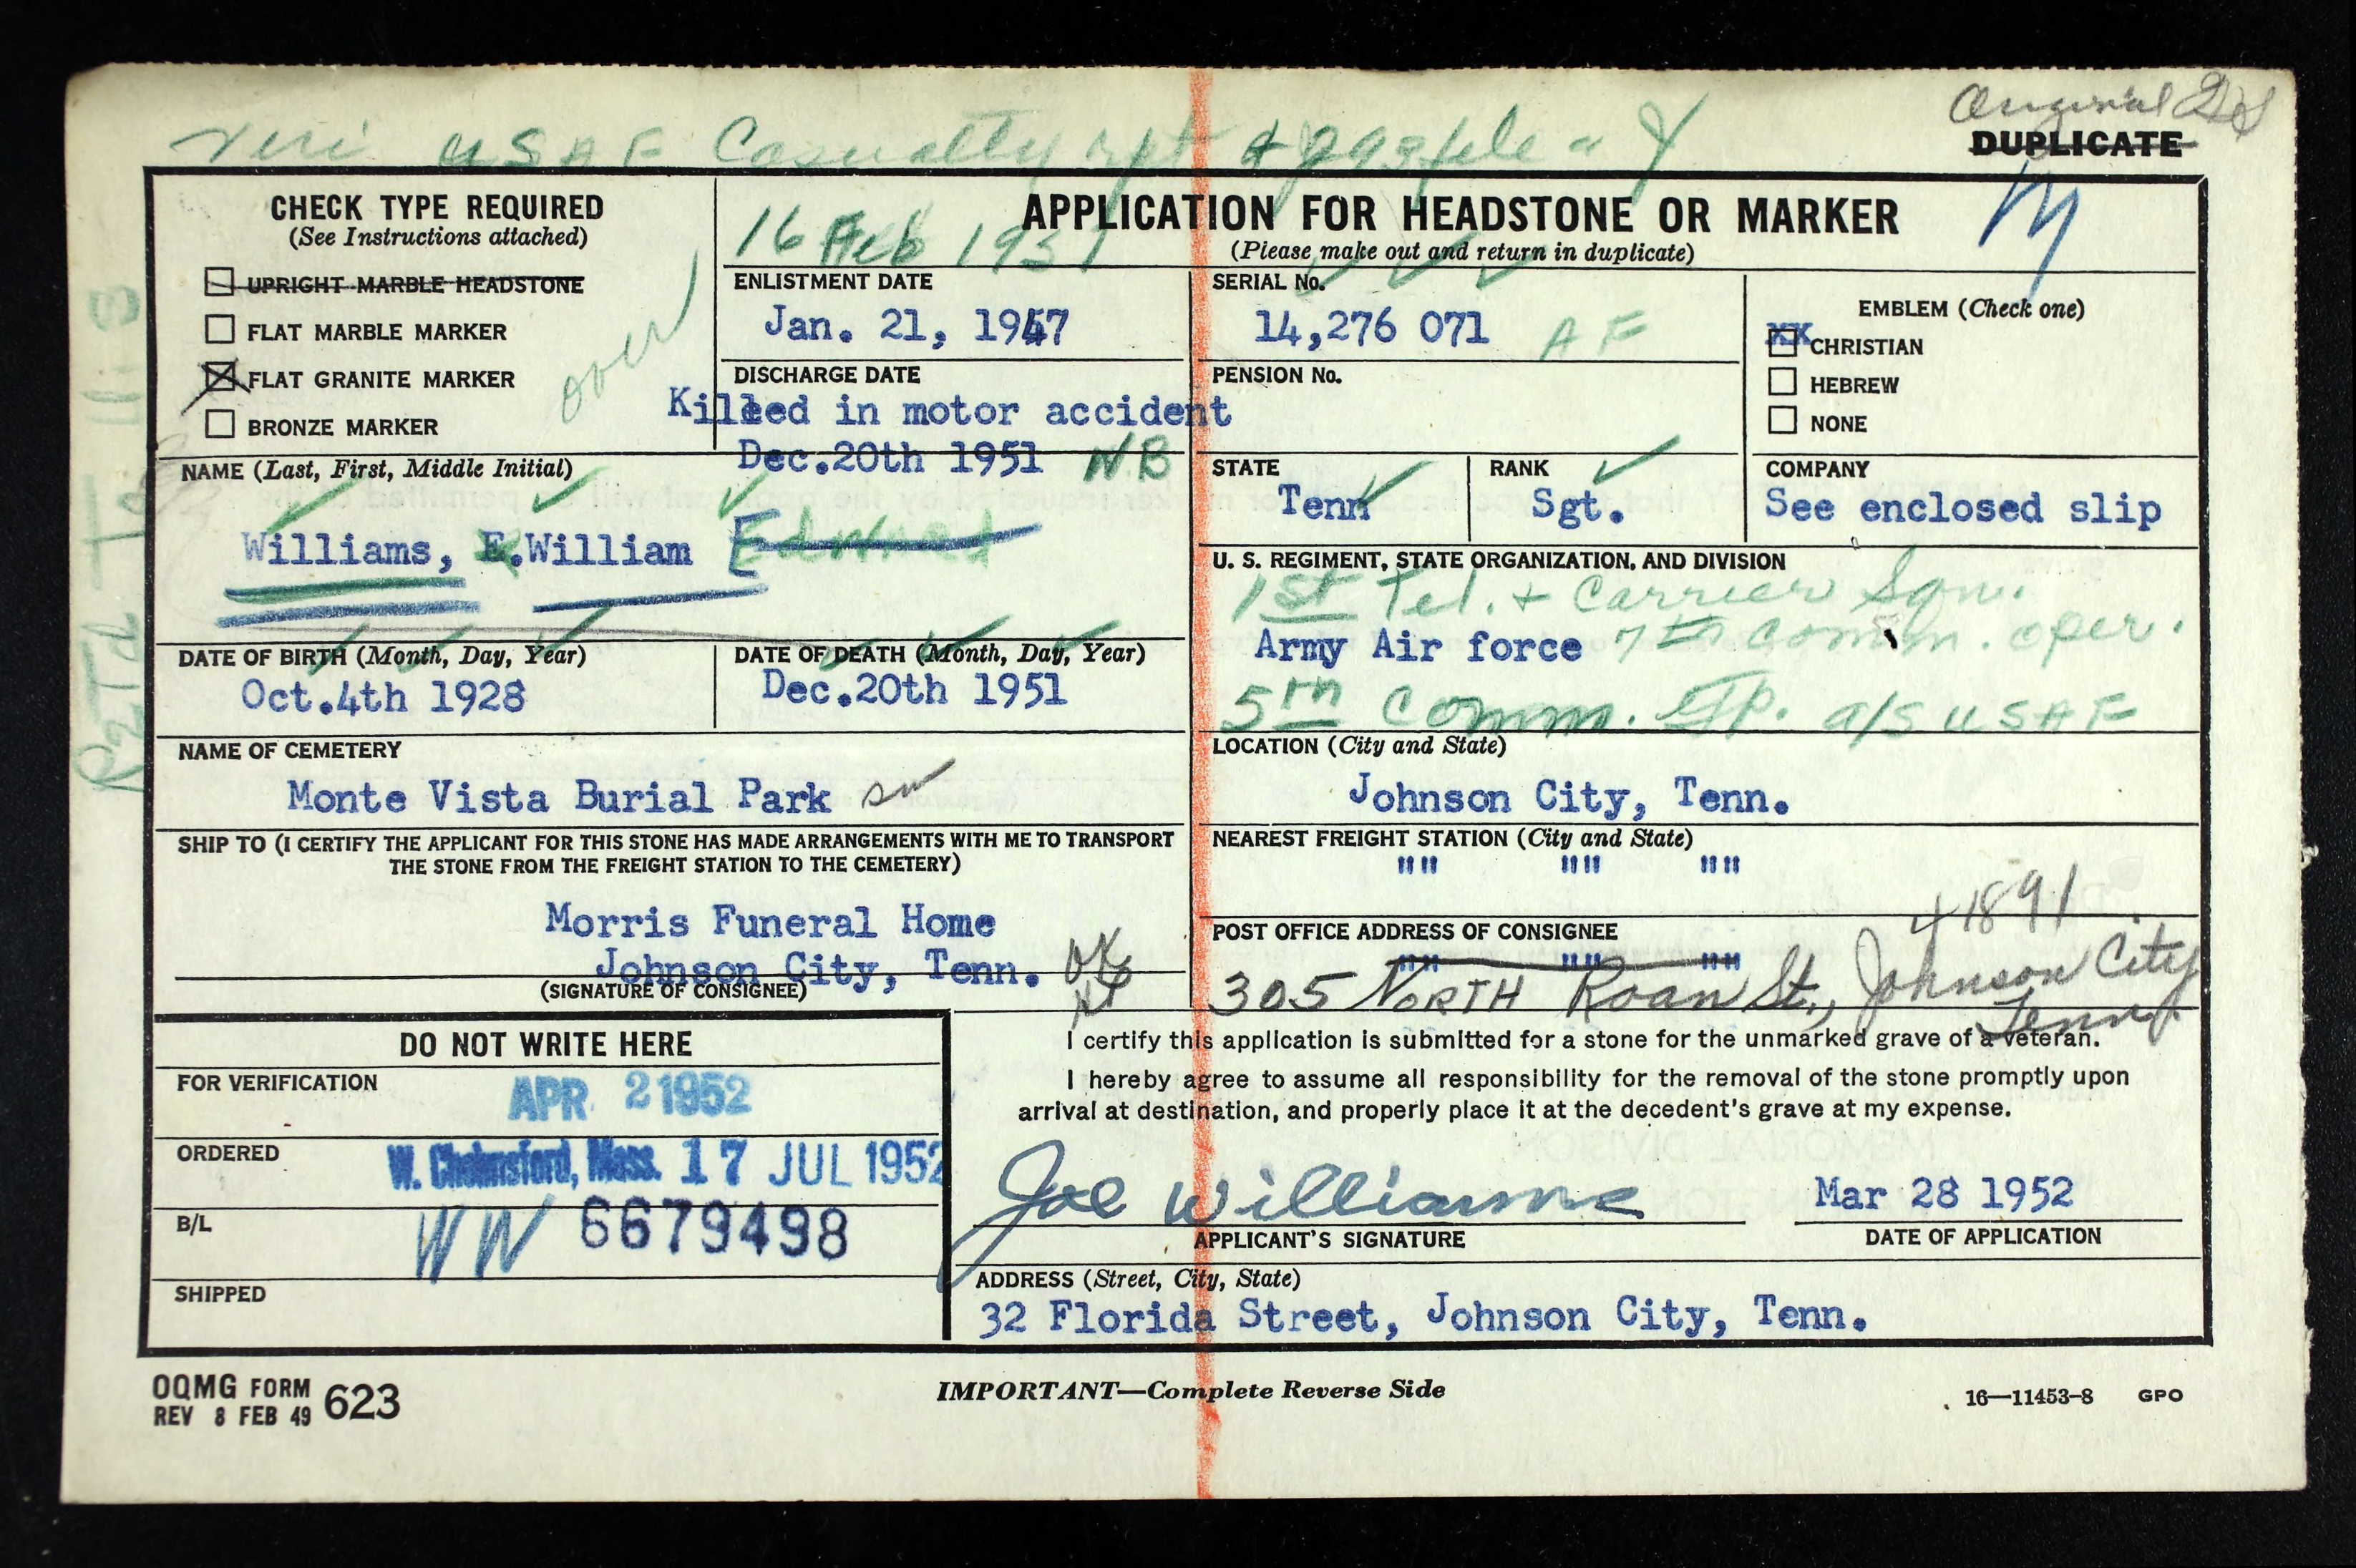 Original
DUPLICATE
Veri USAF Casualty rpt
CHECK TYPE REQUIRED
(See Instructions attached)
UPRIGHT MARBLE HEADSTONE
FLAT MARBLE MARKER
FLAT GRANITE MARKER
BRONZE MARKER
over
16 Feb 1951
APPLICATION FOR HEADSTONE OR MARKER
(Please make out and return in duplicate)
M
ENLISTMENT DATE
Jan. 21, 1947
SERIAL No.
14,276 071 AF
EMBLEM (Check one)
XX
CHRISTIAN
HEBREW
NONE
DISCHARGE DATE
Killed in motor accident
Dec.20th 1951 NB
PENSION No.
NAME (Last, First, Middle Initial)
Williams, E.William Edward
STATE
Tenn
RANK
Sgt.
COMPANY
See enclosed slip
U. S. REGIMENT, STATE ORGANIZATION, AND DIVISION
1st Tel. + Carrier Sqn.
Army Air force 7th Comm. oper.
5th Comm. Gp. a/s USAF
DATE OF BIRTH (Month, Day, Year)
Oct.4th 1928
DATE OF DEATH (Month, Day, Year)
Dec.20th 1951
NAME OF CEMETERY
Monte Vista Burial Park
LOCATION (City and State)
Johnson City, Tenn.
SHIP TO (I CERTIFY THE APPLICANT FOR THIS STONE HAS MADE ARRANGEMENTS WITH ME TO TRANSPORT
THE STONE FROM THE FREIGHT STATION TO THE CEMETERY)
Morris Funeral Home
Johnson City, Tenn. OK
(SIGNATURE OF CONSIGNEE)
NEAREST FREIGHT STATION (City and State)
"" "" ""
41891
POST OFFICE ADDRESS OF CONSIGNEE
"" "" ""
305 NORTH Roan St., Johnson City
Tenn.
DO NOT WRITE HERE
FOR VERIFICATION
APR 2 1952
ORDERED
W. Chelmsford, Mass. 17 JUL 1952
B/L
WW 6679498
SHIPPED
I certify this application is submitted for a stone for the unmarked grave of a veteran.
I hereby agree to assume all responsibility for the removal of the stone promptly upon
arrival at destination, and properly place it at the decedent's grave at my expense.
Joe Williams
Mar 28 1952
APPLICANT'S SIGNATURE
DATE OF APPLICATION
ADDRESS (Street, City, State)
32 Florida Street, Johnson City, Tenn.
OQMG FORM 623
REV 8 FEB 49
IMPORTANT—Complete Reverse Side
16—11453-8 GPO